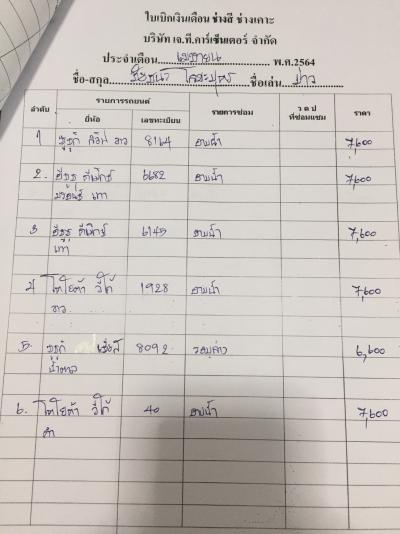 ใบเบิกเงินเดือน ช่างสี ช่างเคาะ
บริษัท เจ.ที.คาร์เซ็นเตอร์ จำกัด
ประจำเดือน เมษายน พ.ศ.2564
ชื่อ-สกุล ชื่อเล่น
ลำดับ รายการรถยนต์ รายการซ่อม ว ด ป ที่ซ่อมแซม ราคา
ยี่ห้อ เลขทะเบียน
1 ซูซูกิ ขาว 8164 อาบน้ำ 7,600
2. อีซูซุ ดีแม็กซ์ 6682 อาบน้ำ 7,600
เทา
3 อีซูซุ ดีแม็กซ์ 6145 อาบน้ำ 7,600
เทา
4 โตโยต้า วีโก้ 1928 อาบน้ำ 7,600
ขาว
5. ซูซูกิ 8092 รอบล่าง 6,600
น้ำตาล
6. โตโยต้า วีโก้ 40 อาบน้ำ 7,600
ดำ